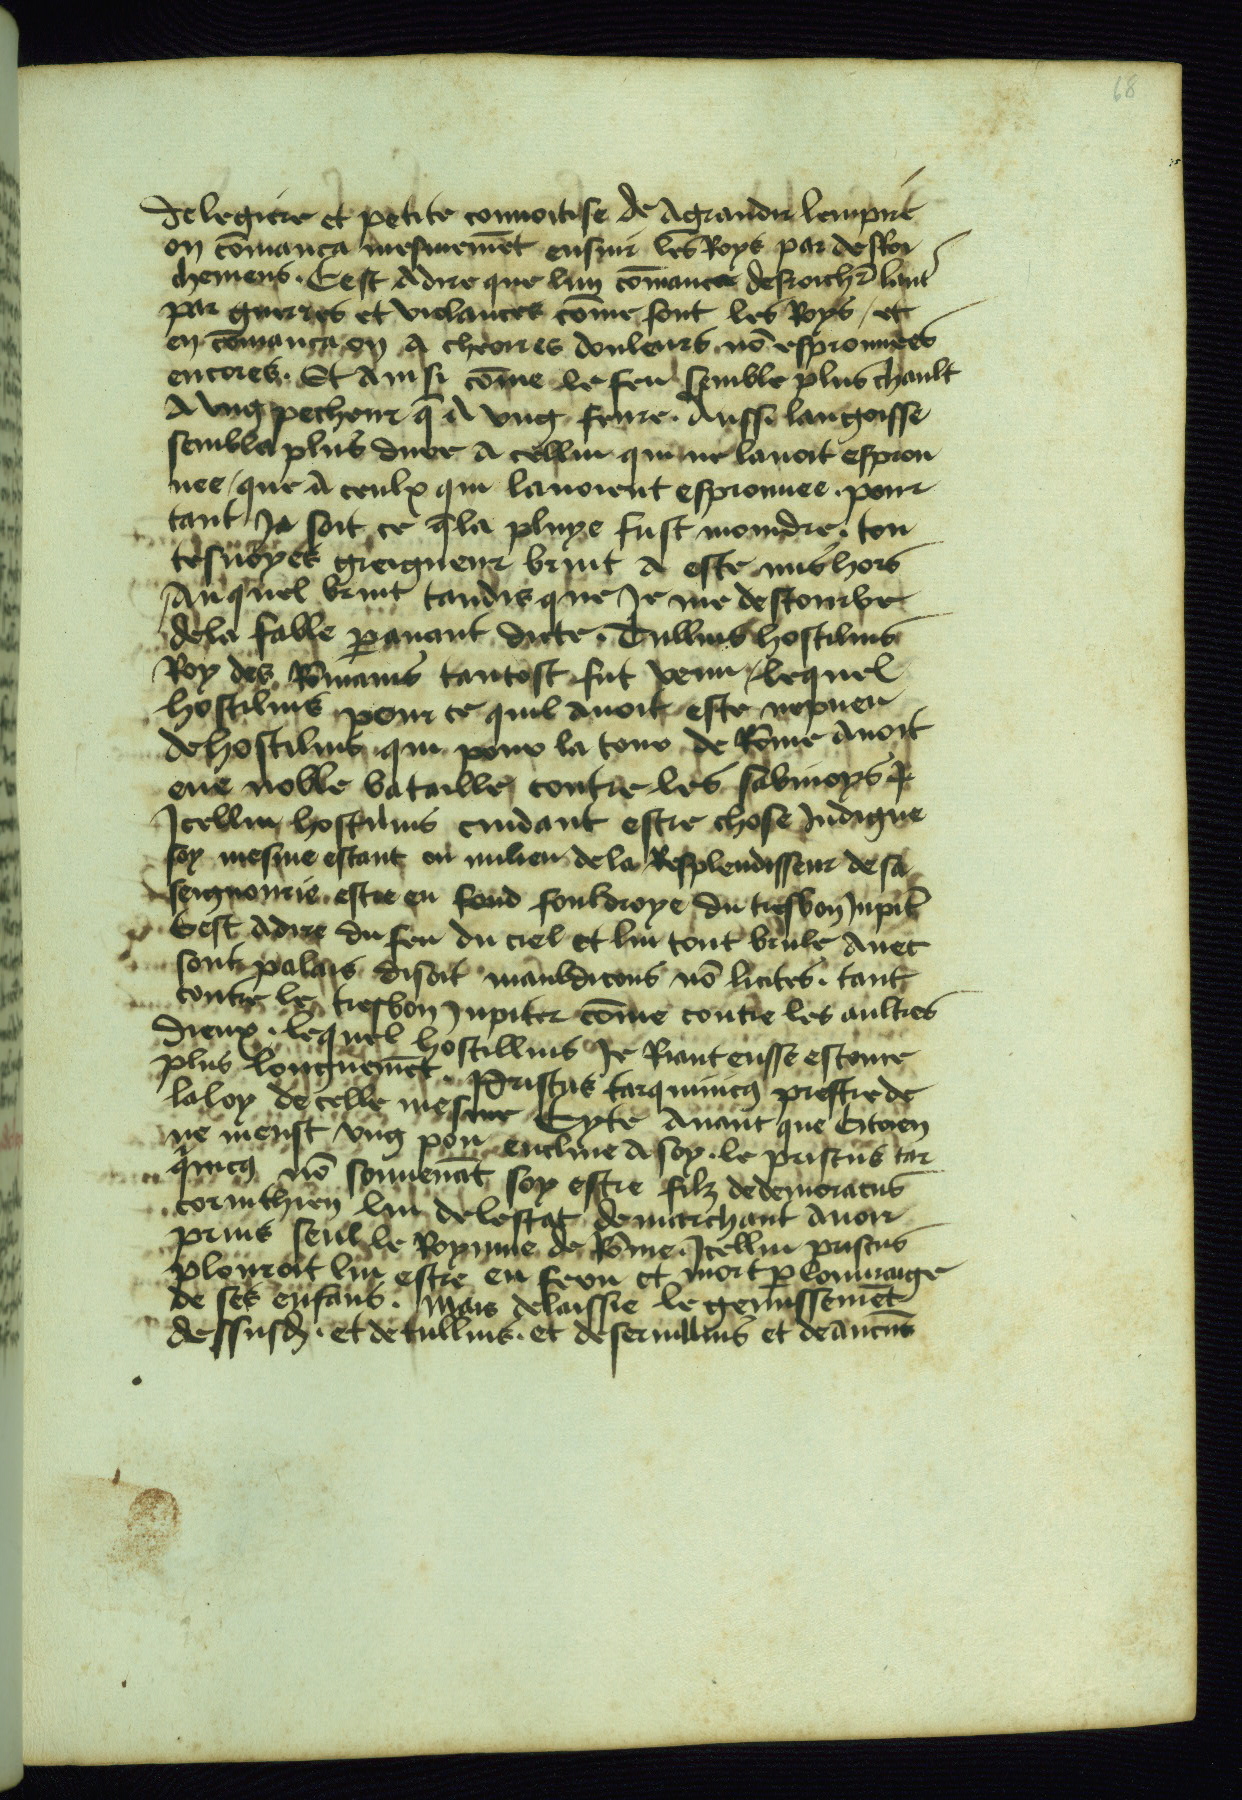 68
de legiere et petite conuoitise de agrandir lempire
on cōmanca mesmemēt ensuir les Roys par desro
chemens. Cest adire que lun cōmance desrochr̄ laut̄
par guerres et violances cōme font les Roys / et
en cōmanca on a cheoir es douleurs nō esprouuees
encores. Et ainsi cōme le feu semble plus chault
a vng pecheur q̄ a vng feure. Aussi langoisse
sembla plus dure a cellui qui ne lauoit esprou
uee / que a ceulx qui lauoient esprouuee. pour
tant Ja soit ce q̄ la pluye fust moindre. tou
tesuoyes greigneur bruit a este mis hors
Auquel bruit tandis que Je me destourbe
dela fable p̄auant dicte. Tullius hostilius
Roy des Rōmains tantost fut venu / lequel
hostilius pour ce quil auoit este nepueu
de hostilius qui pour la tour de Rōme auoit
eue noble bataille contre les sabinoys
Icellui hostilius cuidant estre chose Indigne
soy mesme estant ou milieu dela Resplendisseur de sa
seignourie estre en fond fouldroye du tresbon Jupit̄
Cest adire du feu du ciel et lui tout brule auec
sont palais disoit mauldicons nō licites. tant
contre le tresbon Jupiter cōme contre les aultres
dieux. lequel hostillius Je Riant eusse escoute
plus longuemēt. Priscus tarquinius prestre de
la loy de celle mesme Cyte auant que Citoien
ne meust vng pou encline a soy. le priscus tar
quinius nō souuenāt soy estre filz dedemoratus
corinthien lui de lestat de marchant auoir
prins seul le Royaume de Rōme. Icellui priscus
plouroit lui estre en feru et mort p̄ louuraige
de ses enfans. Mais delaissie le gemissemēt
dessusd. et de tullius. et de seruillius et de ancus